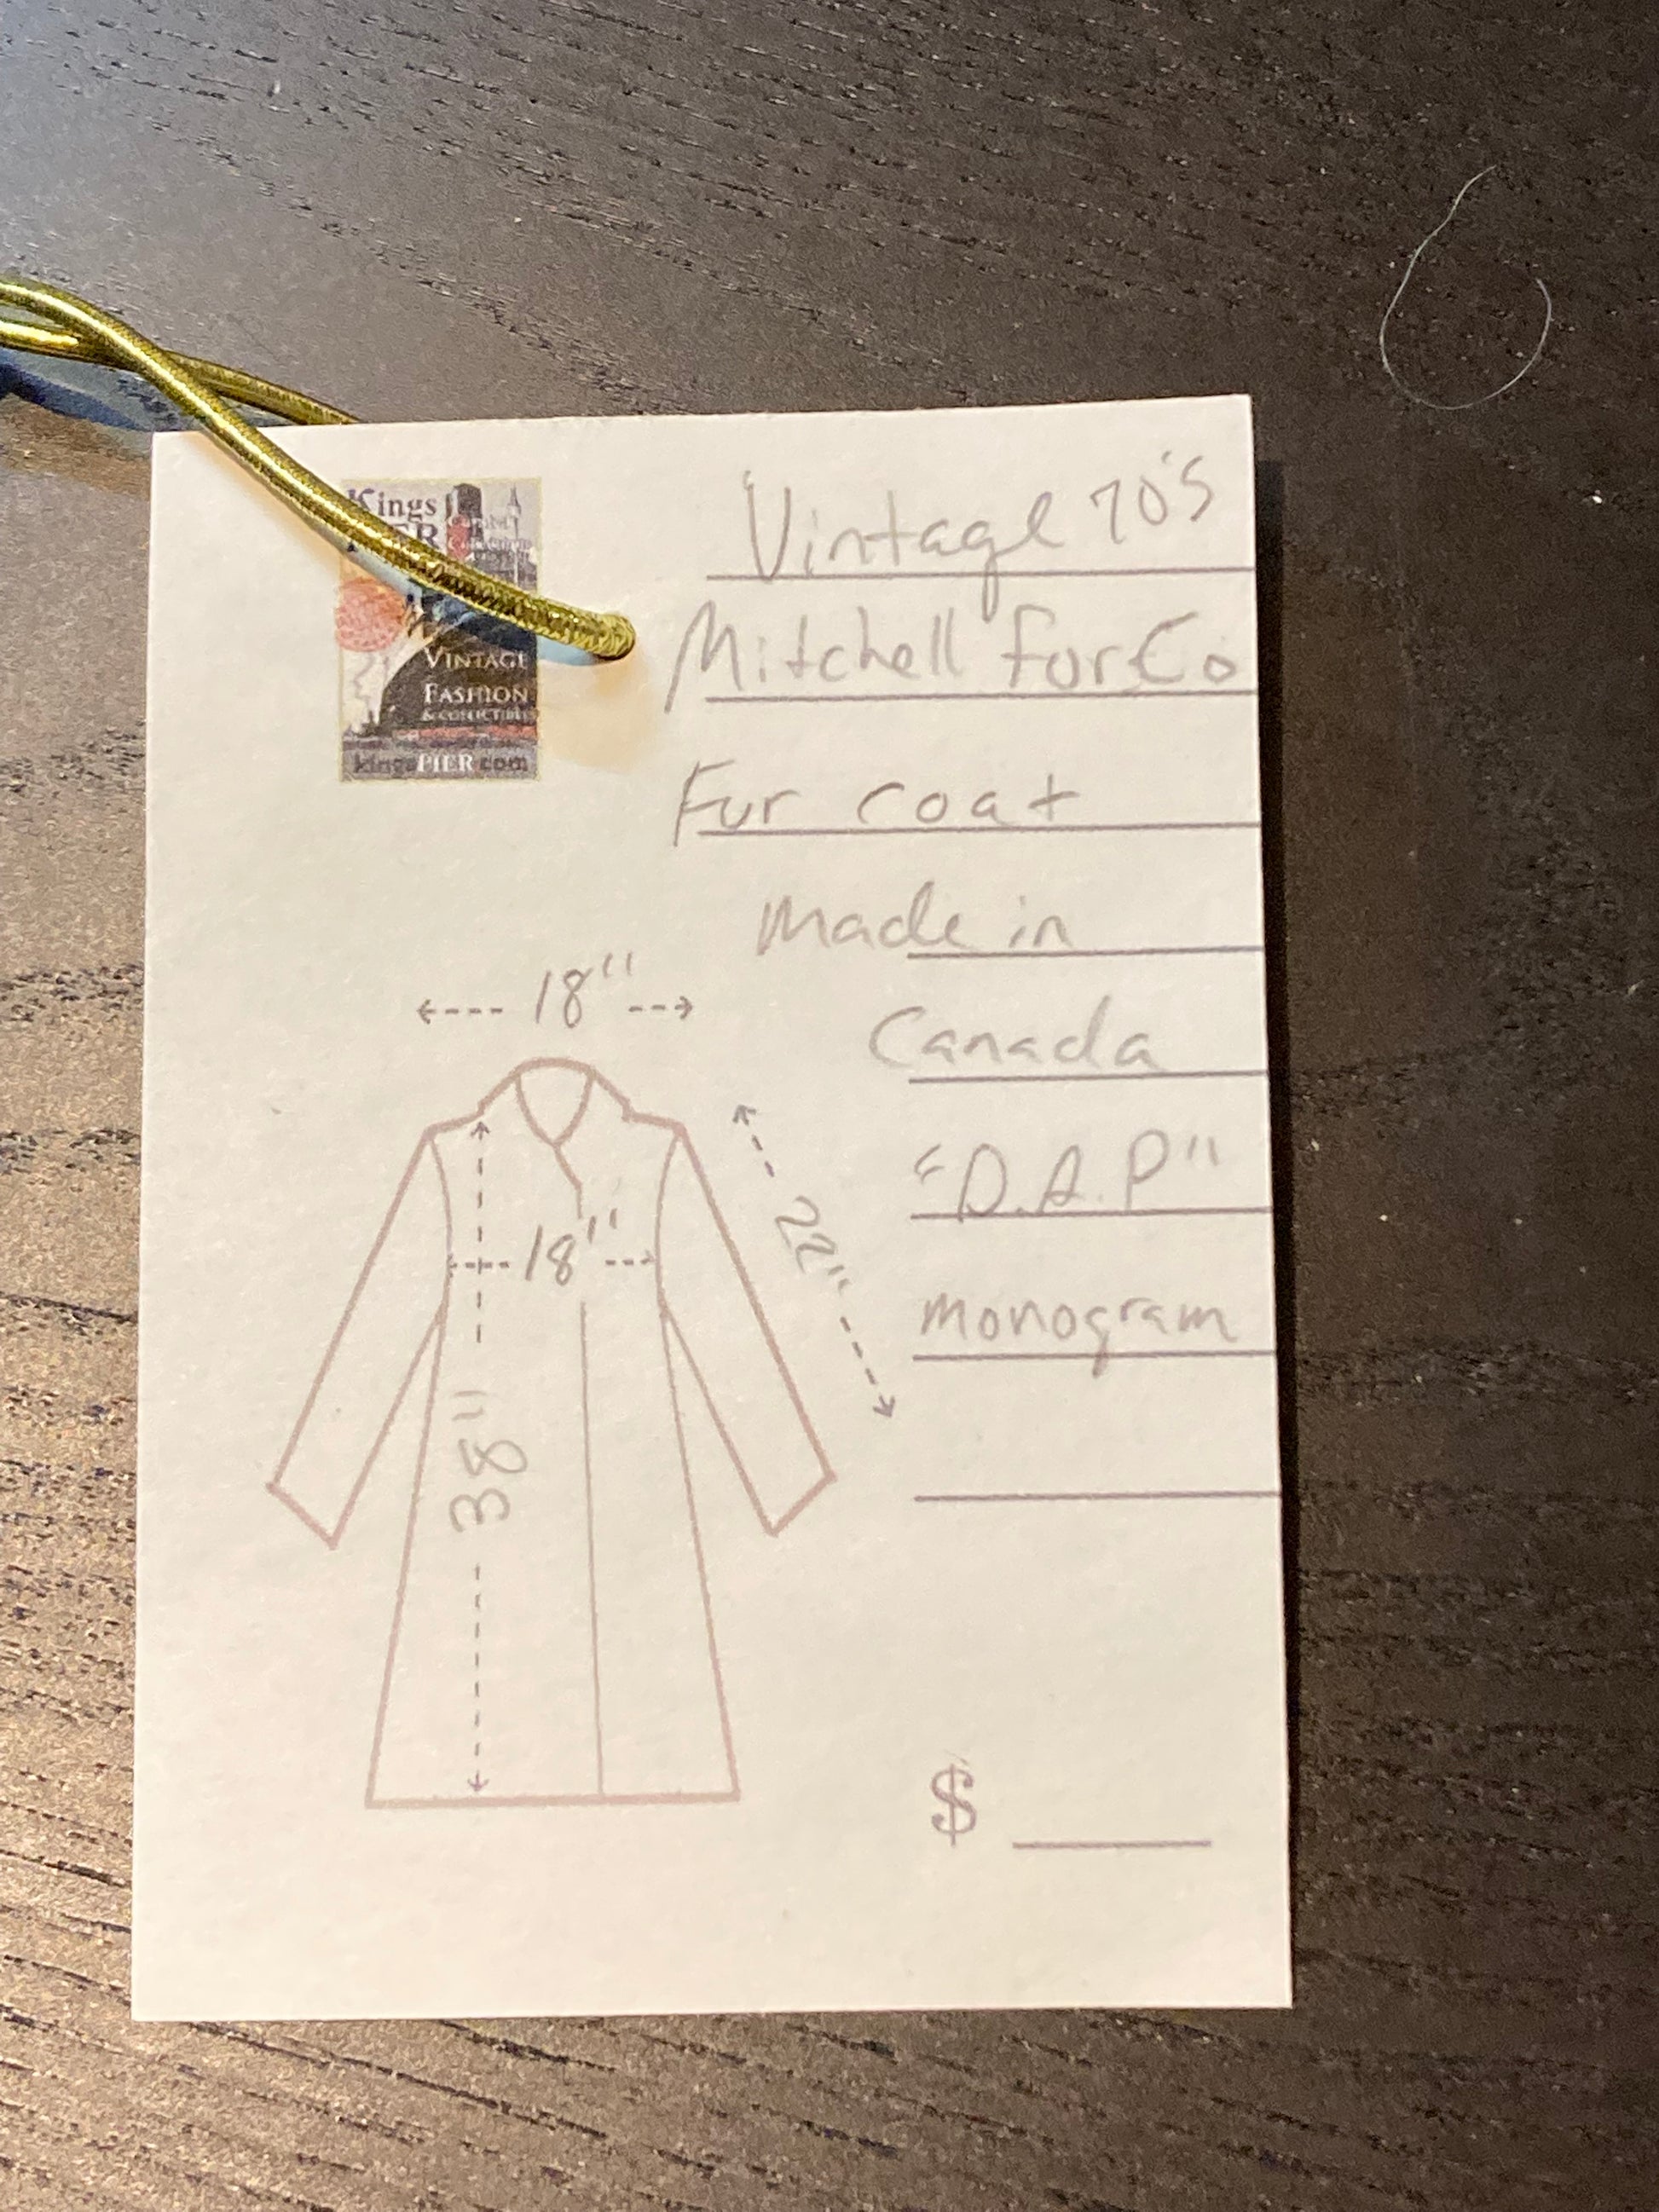 Kings
VINTAGE
FASHION
& COLLECTIBLES
kingsPIER.com
Vintage 70's
Mitchell Fur Co
Fur coat
made in
Canada
"D.A.P"
monogram
18"
18"
22"
38"
$